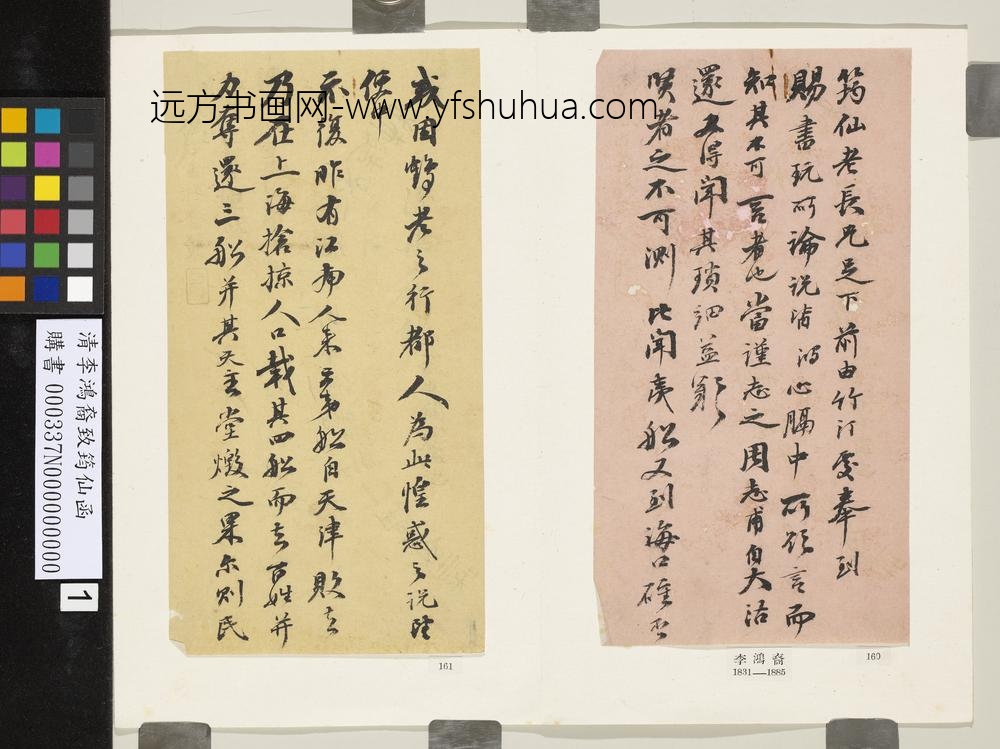 筠仙老長兄足下前由竹汀處奉到
賜書玩所論說皆 心膈中所欲言而
知其不可言者也當謹志之周志甫自天沽
還又得聞其瑣細益
賢者之不可測比聞夷船又到海口確否
或因鶴老之行都人為此惶惑之說
不復昨有江南人來云弟船自天津敗去
乃在上海搶掠人口載其四船而去百姓并
力奪還三船并其天主堂燬之果尔則民
李鴻裔
1831—1885
160
161
清李鴻裔致筠仙函
購書 000337N000000000
1
远方书画网-www.yfshuhua.com